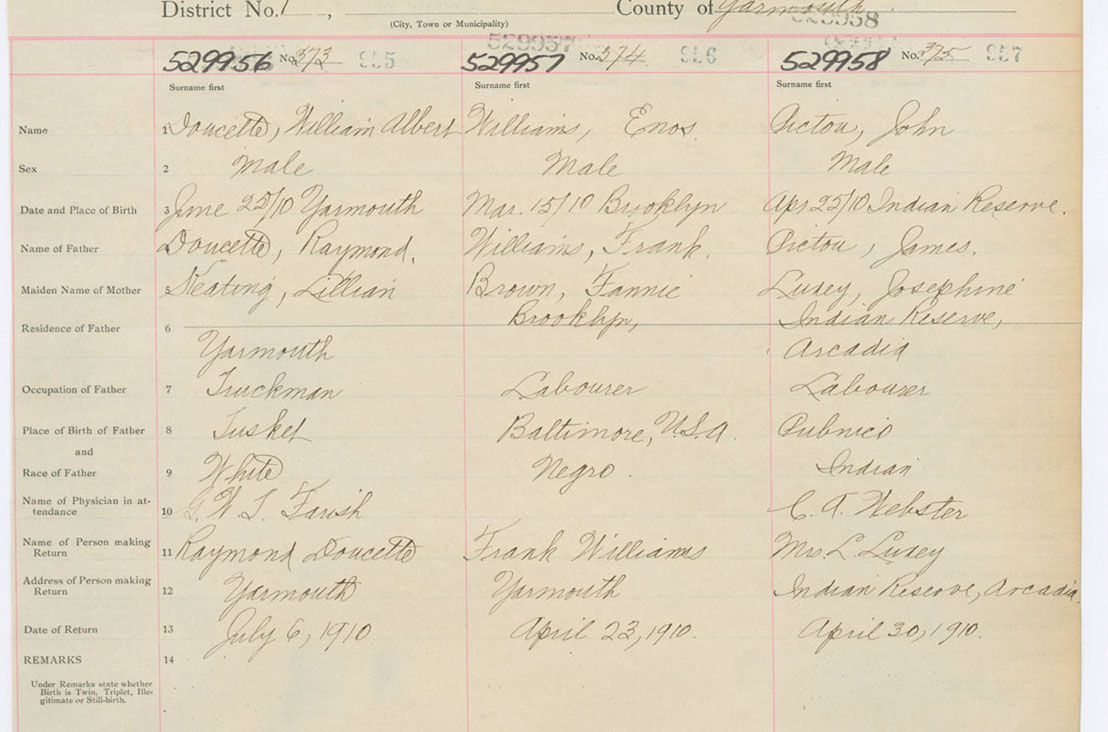 District No. 1 , County of Yarmouth
(City, Town or Municipality)
529958
529957
529956 No. 373 955 529957 No. 374 956 529958 No. 375 957
Surname first Surname first Surname first
Name 1 Doucette, William Albert Williams, Enos. Pictou, John
Sex 2 Male Male Male
Date and Place of Birth 3 June 25/10 Yarmouth Mar. 15/10 Brooklyn Apr 25/10 Indian Reserve.
Name of Father 4 Doucette, Raymond. Williams, Frank. Pictou, James.
Maiden Name of Mother 5 Keating, Lillian Brown, Fannie Luxey, Josephine
Residence of Father 6 Brooklyn, Indian Reserve,
Yarmouth Arcadia
Occupation of Father 7 Truckman Labourer Labourer
Place of Birth of Father 8 Tusket Baltimore, U.S.A. Pubnico
and
Race of Father 9 White Negro. Indian
Name of Physician in at-
tendance 10 G. W. T. Farish C. A. Webster
Name of Person making
Return 11 Raymond Doucette Frank Williams Mrs. L Luxey
Address of Person making
Return 12 Yarmouth Yarmouth Indian Reserve, Arcadia.
Date of Return 13 July 6, 1910 April 23, 1910. April 30, 1910.
REMARKS 14
Under Remarks state whether
Birth is Twin, Triplet, Ille-
gitimate or Still-birth.